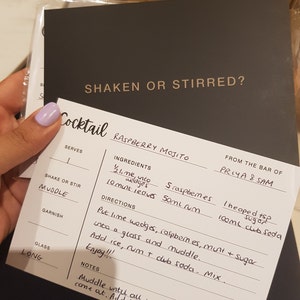 SHAKEN OR STIRRED?
Cocktail RASPBERRY MOJITO
SERVES
1
INGREDIENTS
FROM THE BAR OF
PRIYA & SAM
½ lime into wedges
5 raspberries
1 heaped tsp sugar
SHAKE OR STIR
MUDDLE
10 mint leaves 50ml rum 100ml club soda
DIRECTIONS
Put lime wedges, raspberries, mint + sugar
into a glass and muddle.
Add ice, rum + club soda. Mix.
Enjoy!!!
GARNISH
GLASS
LONG
NOTES
Muddle until all
come at. Add